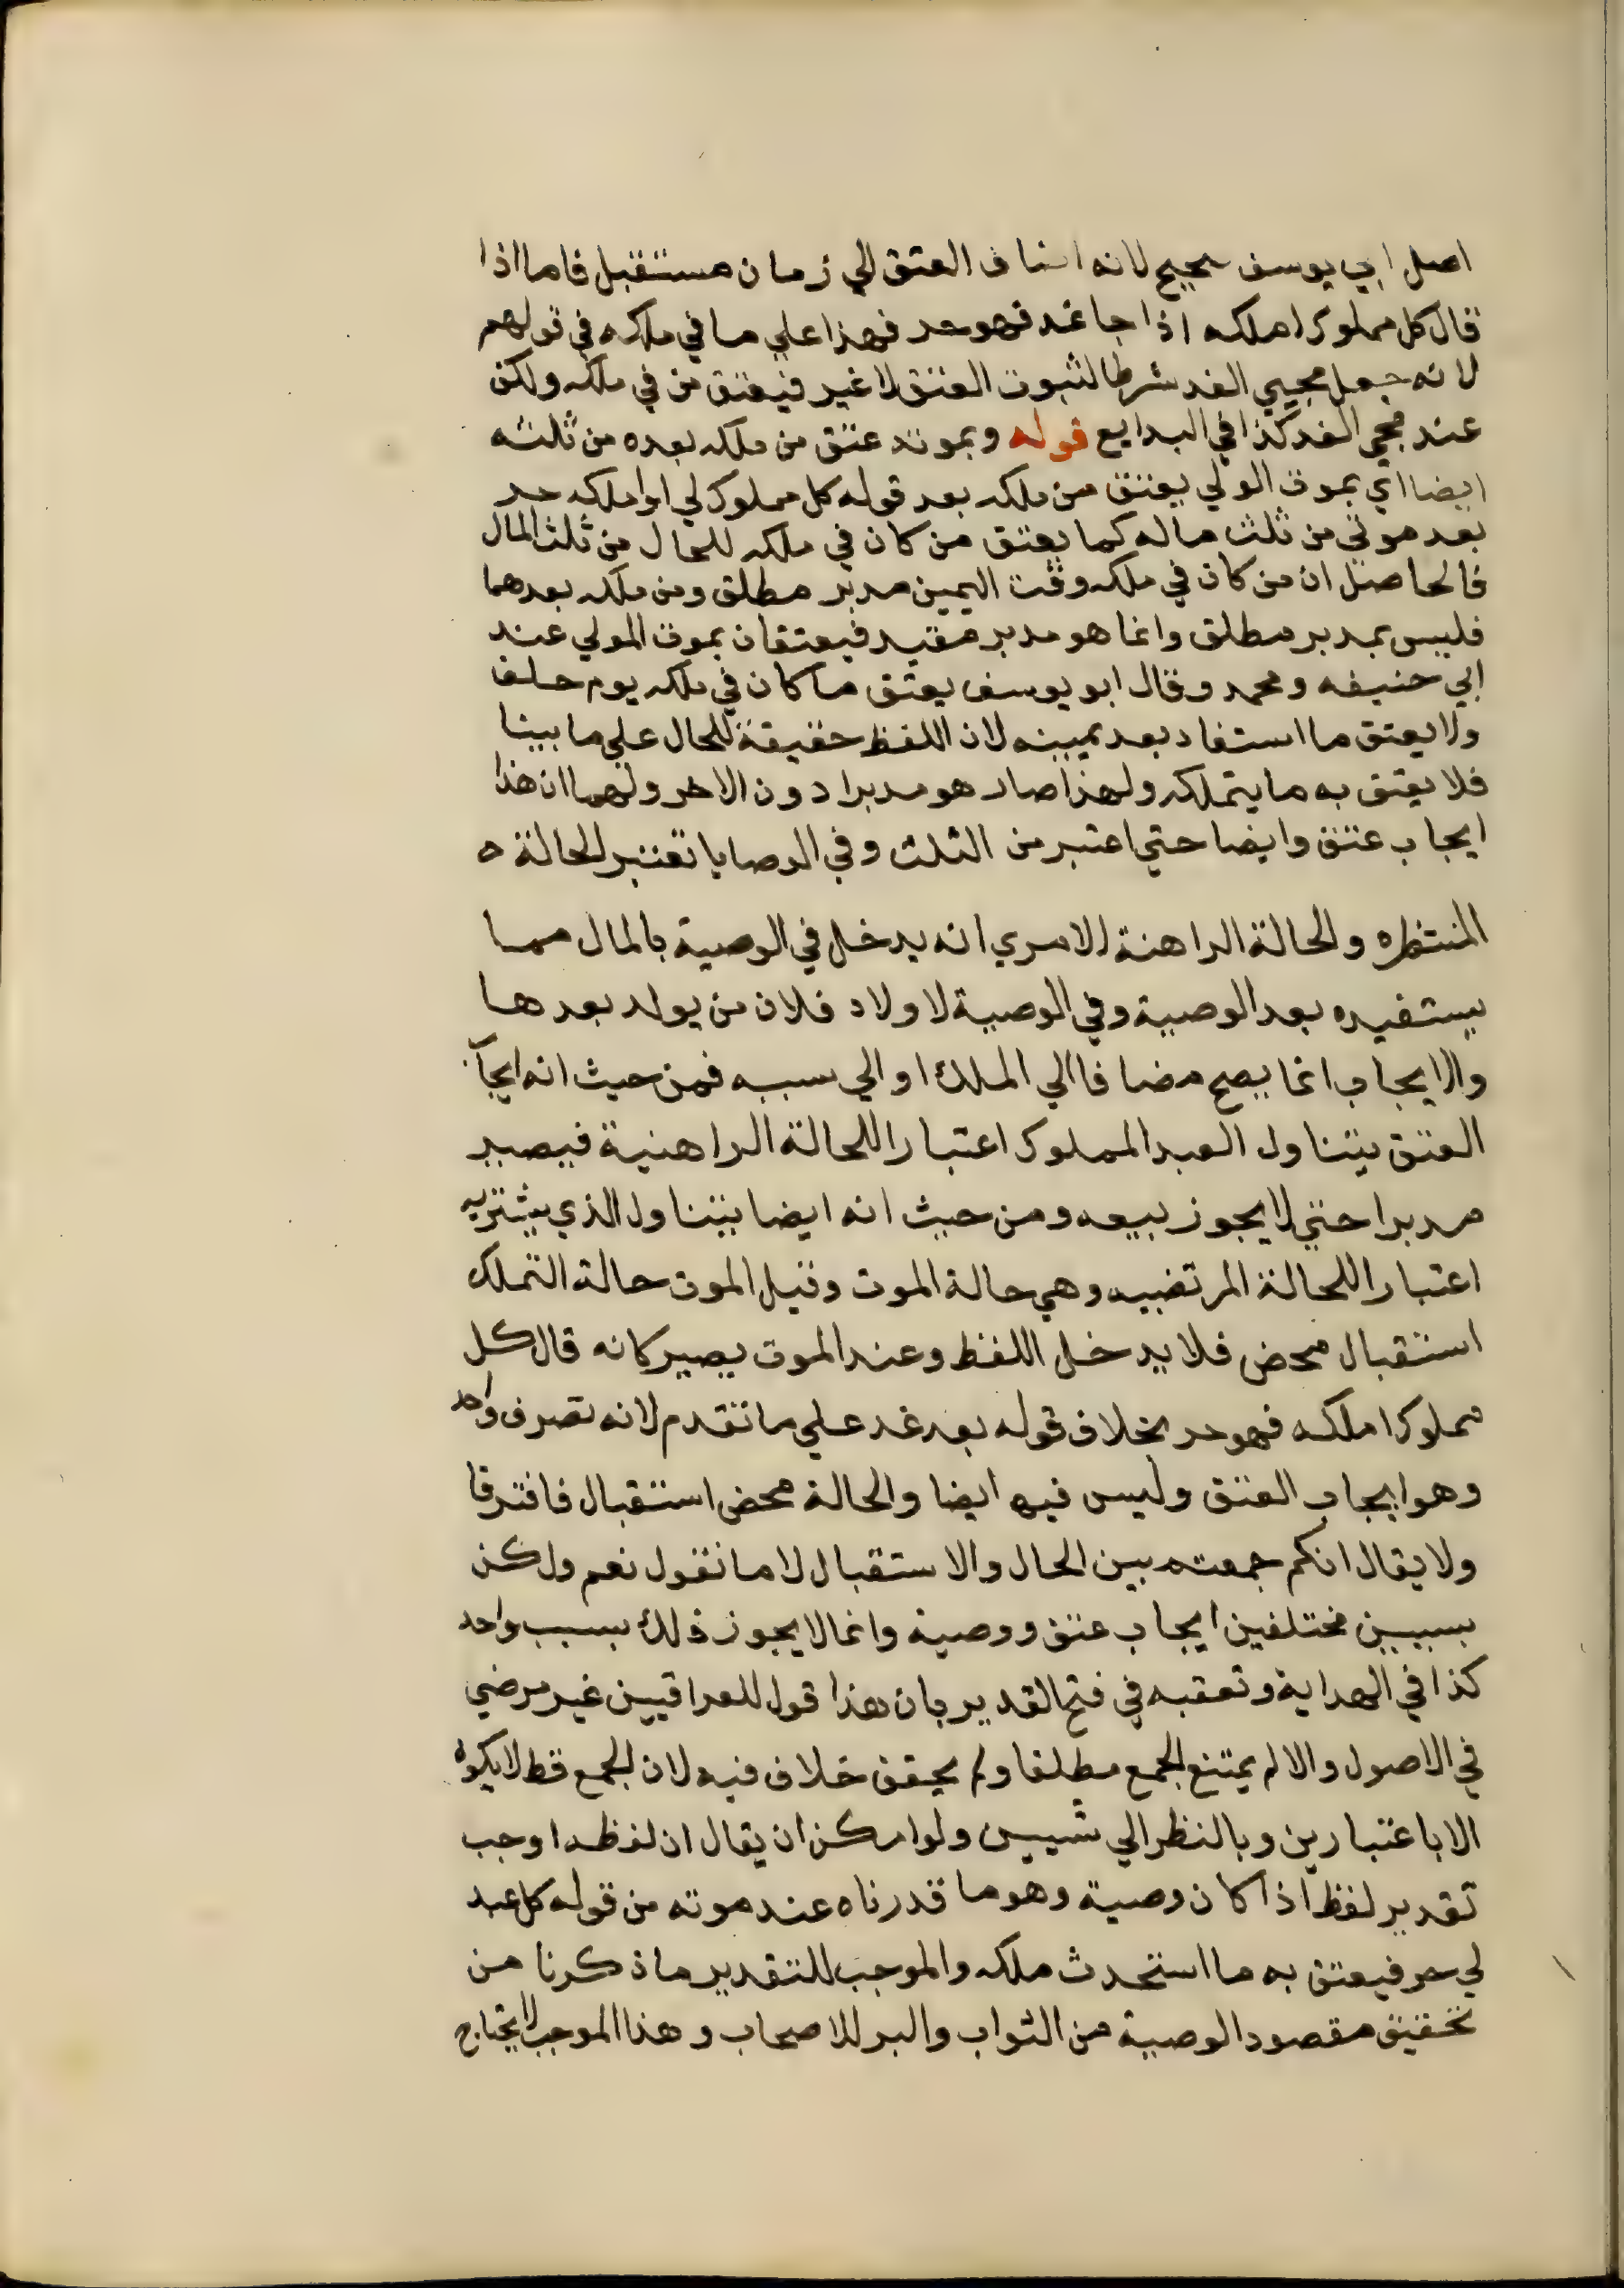 اصل ابي يوسف صحيح لانه اضاف العتق الي زمان مستقبل فاما اذا
قال كل مملوك املكه اذا جا غد فهو حر فهذا علي ما في ملكه في قولهم
لانه جعل مجيي الغد شرطا لثبوت العتق لا غير فيعتق من في ملكه ولكن
عند مجي الغد كذا في البدايع قوله وبموته عتق من ملكه بعده من ثلثه
ايضا اي بموت الولي يعتق من ملكه بعد قوله كل مملوك لي او املكه حر
بعد موتي من ثلث ماله كما يعتق من كان في ملكه للحال من ثلث المال
فالحاصل ان من كان في ملكه وقت اليمين مدبر مطلق ومن ملكه بعدهما
فليس بمدبر مطلق وانما هو مدبر مقيد فيعتقان بموت المولي عند
ابي حنيفه ومحمد وقال ابو يوسف يعتق ما كان في ملكه يوم حلف
ولا يعتق ما استفاد بعد يمينه لان اللفظ حقيقة للحال علي ما بينا
فلا يعتق به ما يتملكه ولهذا صار هو مدبرا دون الاخر ولهما ان هذا
ايجاب عتق وايضا حتي اعتبر من الثلث وفي الوصايا تعتبر الحالة ه
المنتظره والحالة الراهنة الا مري انه يدخل في الوصية بالمال مما
يستفيده بعد الوصية وفي الوصية لاولاد فلان من يولد بعدها
والايجاب انما يصح مضافا الي الملك او الي سببه فمن حيث انه ايجا
العتق يتناول العبد المملوك اعتبارا للحالة الراهنية فيصير
مدبرا حتي لا يجوز بيعه ومن حيث انه ايضا يتناول الذي يشتريه
اعتبارا للحالة المرتضيه وهي حالة الموت وقبل الموت حالة التملك
استقبال محض فلا يدخل اللفظ وعند الموت يصير كانه قال كل
مملوك املكه فهو حر بخلاف قوله بعد غد علي ما تقدم لانه تصرف واحد
وهو ايجاب العتق وليس فيه ايضا والحالة محض استقبال فافترقا
ولا يقال انكم جمعته بين الحال والاستقبال لا ما نقول نعم ولكن
بسببين مختلفين ايجاب عتق ووصية وانما لا يجوز ذلك بسبب واحد
كذا في الهداية وتعقبه في فتح القدير بان هذا قول للعراقيين غير مرضي
في الاصول والا لم يمتنع الجمع مطلقا ولم يحقق خلاف فيه لان الجمع قط لا يكون
الا باعتبارين وبالنظر الي شيين ولو امكن ان يقال ان لفظه اوجب
تقدير لفظ اذا كان وصية وهو ما قدرناه عند موته من قوله كل عبد
لي حر فيعتق به ما استحدث ملكه والموجب للتقدير ما ذكرنا من
تحقيق مقصود الوصية من الثواب والبر للاصحاب وهذا الموجب لا يحتاج